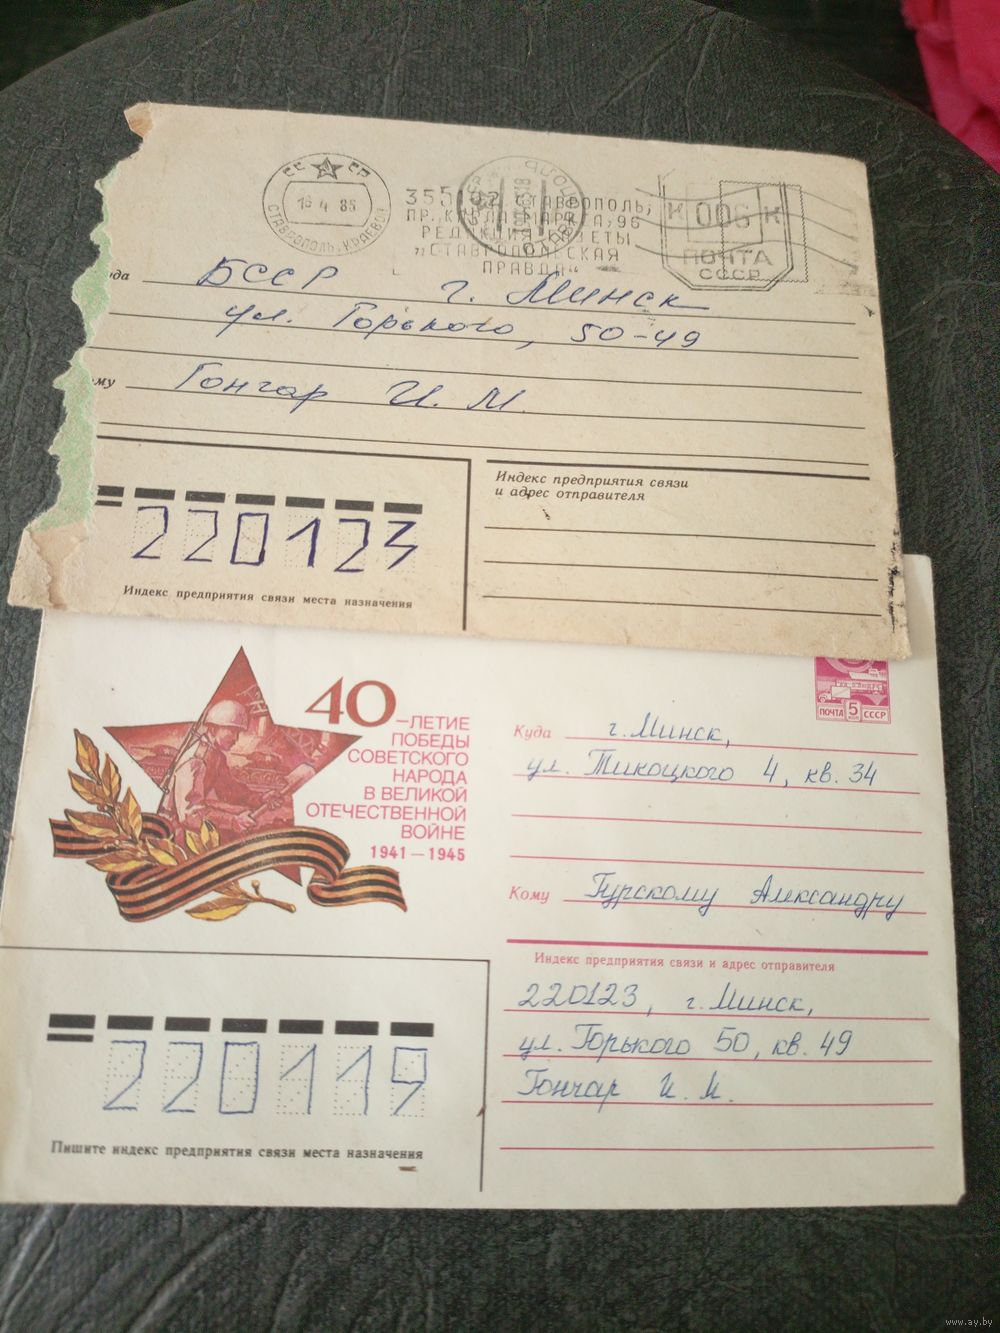 СССР
16 4 85
СТАВРОПОЛЬ, КРАЕВОЙ
355 02 СТАВРОПОЛЬ,
ПР. КАРЛА МАРКСА, 96
РЕДАКЦИЯ ГАЗЕТЫ
„СТАВРОПОЛЬСКАЯ
ПРАВДА“
К 006 К
ПОЧТА
СССР
уда БССР г. Минск
ул. Горького, 50-49
ому Гончар И. М.
220123
Индекс предприятия связи места назначения
Индекс предприятия связи
и адрес отправителя
40
-ЛЕТИЕ
ПОБЕДЫ
СОВЕТСКОГО
НАРОДА
В ВЕЛИКОЙ
ОТЕЧЕСТВЕННОЙ
ВОЙНЕ
1941—1945
ПОЧТА 5 КОП СССР
Куда г. Минск,
ул. Тикоцкого 4, кв. 34
Кому Гурскому Александру
Индекс предприятия связи и адрес отправителя
220123, г. Минск,
ул. Горького 50, кв. 49
Гончар И. М.
220119
Пишите индекс предприятия связи места назначения
www.ay.by